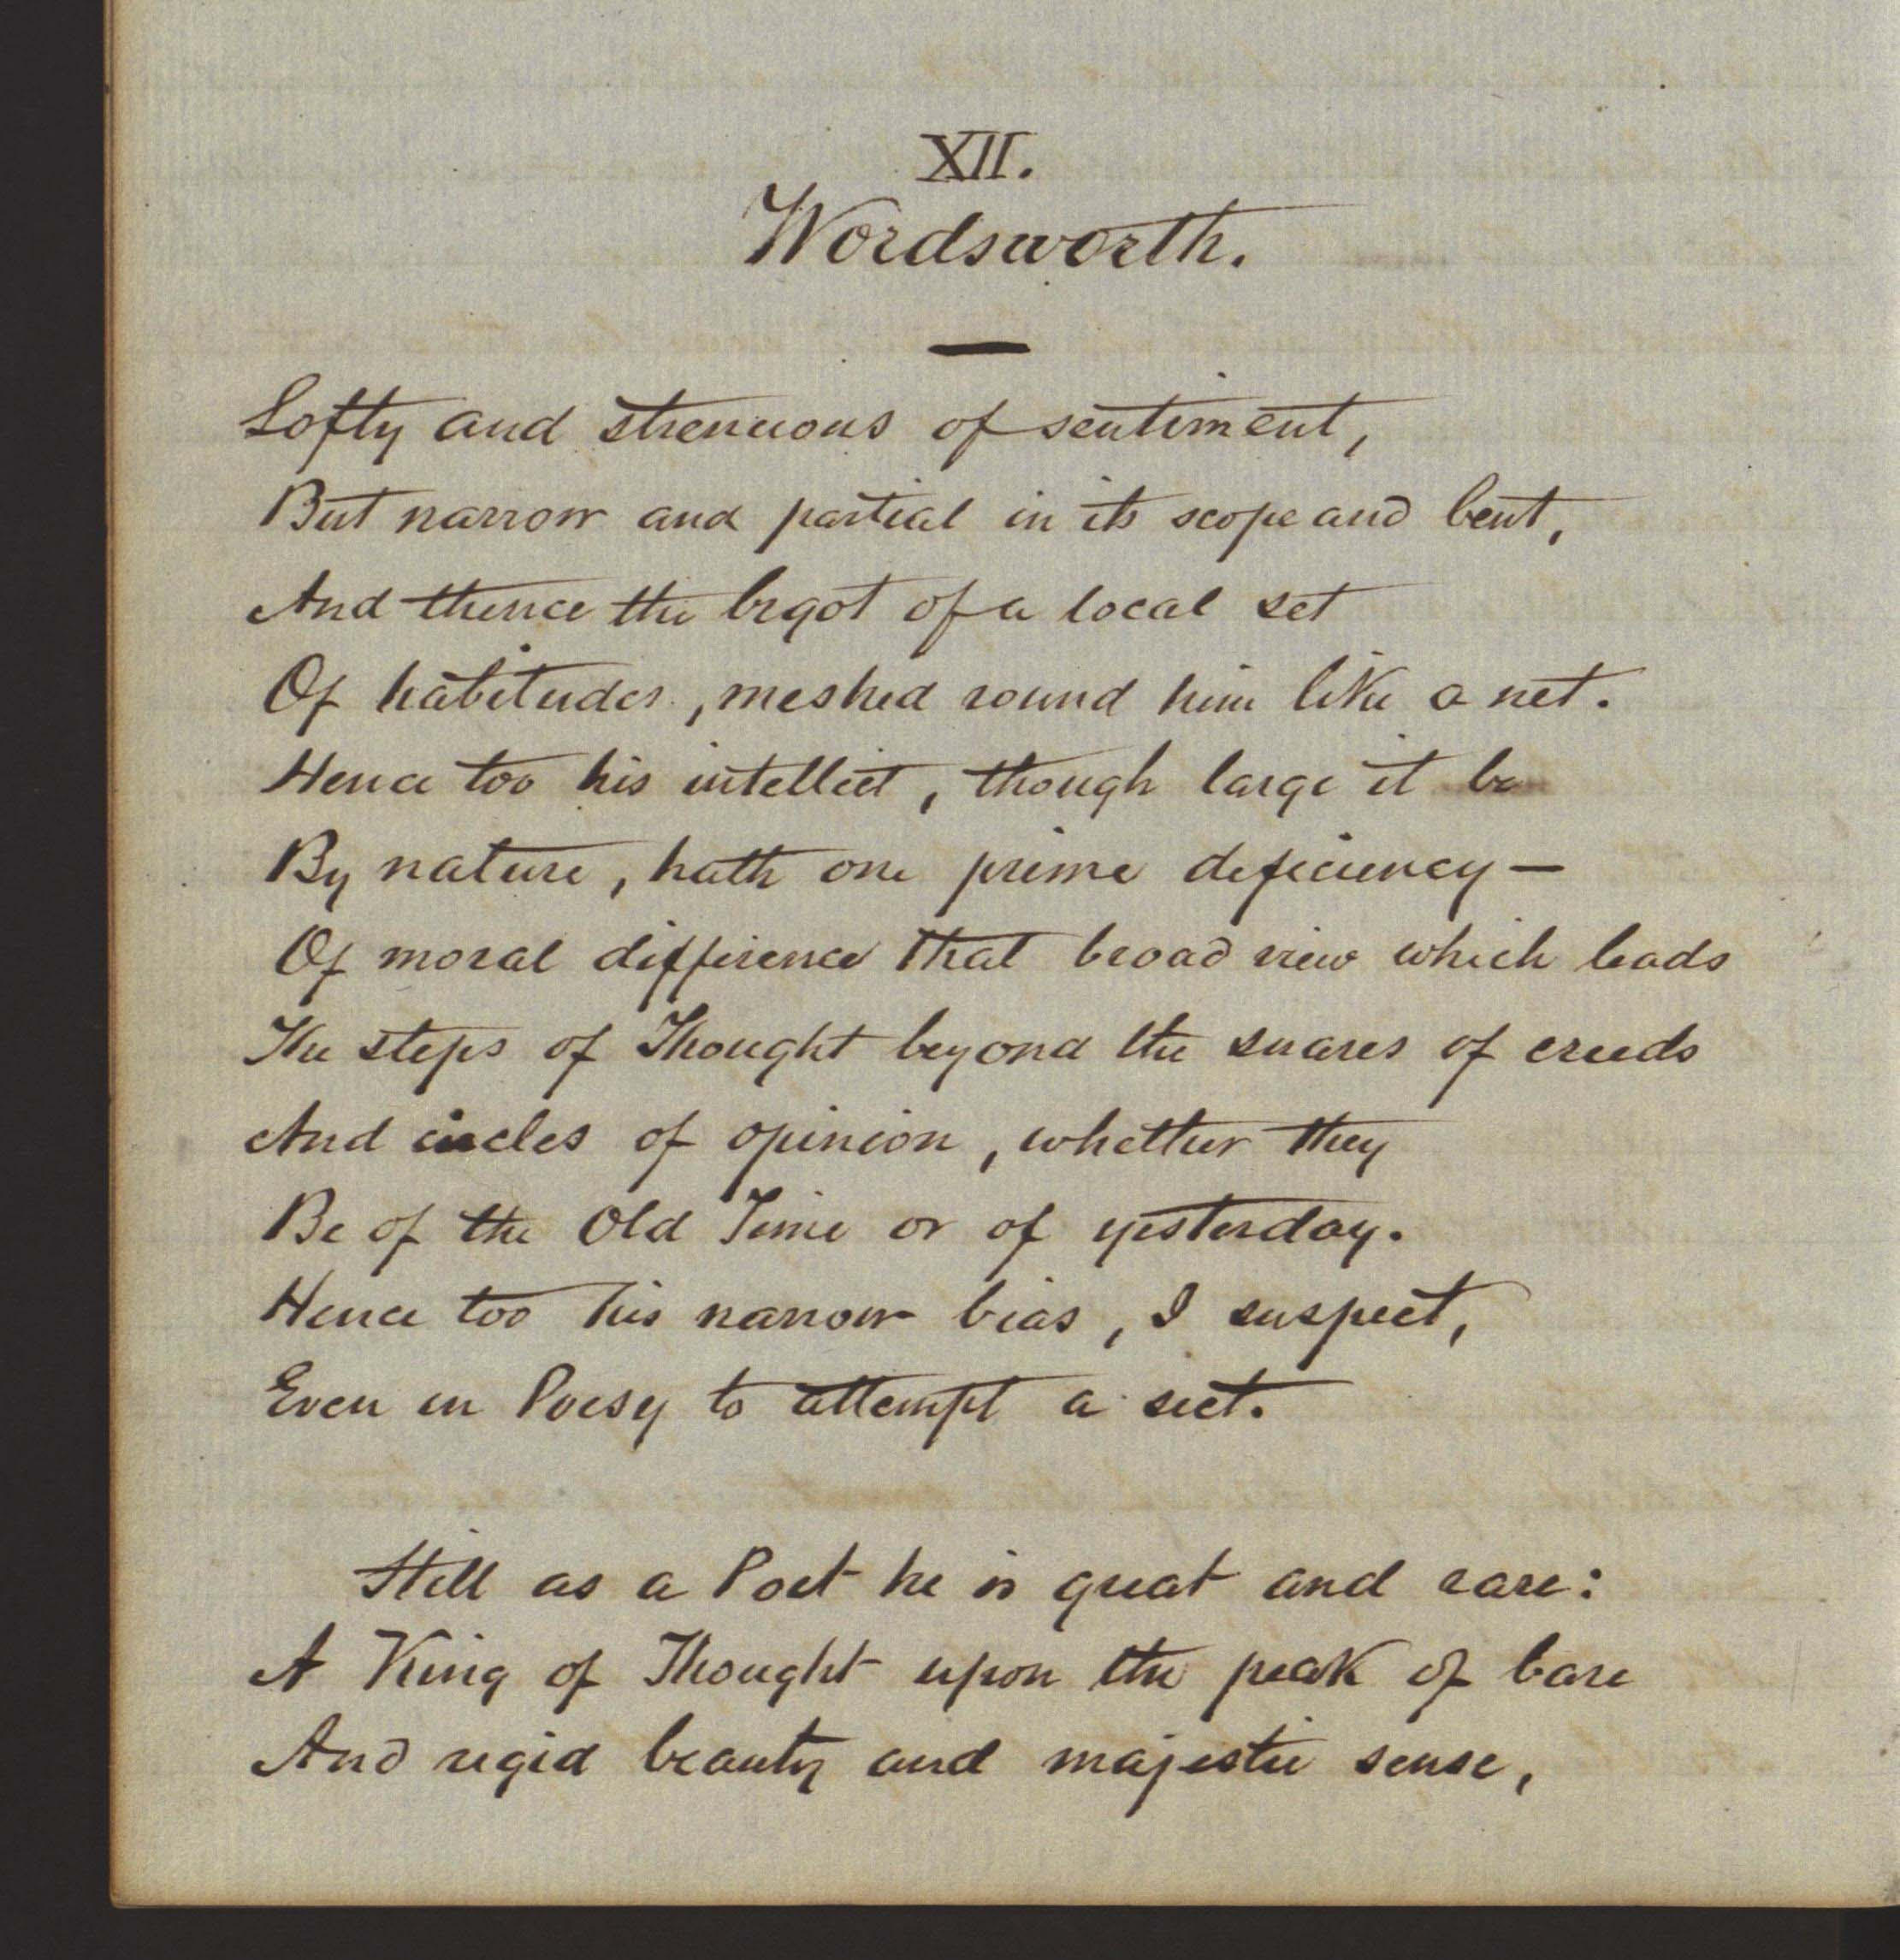 XII.
Wordsworth.
Lofty and strenuous of sentiment,
But narrow and partial in its scope and bent,
And thence the bigot of a local set
Of habitudes, meshed round him like a net.
Hence too his intellect, though large it be
By nature, hath one prime deficiency—
Of moral difference that broad view which leads
The steps of Thought beyond the snares of creeds
And circles of opinion, whether they
Be of the Old Time or of yesterday.
Hence too his narrow bias, I suspect,
Even in Poesy to attempt a sect.
Still as a Poet he is great and rare:
A King of Thought upon the peak of bare
And rigid beauty and majestic sense,